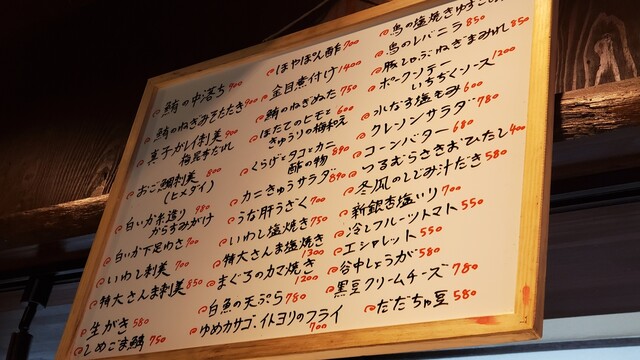 鮪の中落ち 900
鮪のねぎみそたたき 900
真子ガレイ刺美 900
梅昆布だれ
おご鯛刺美 800
(ヒメダイ)
白いか糸造り 980
からすみがけ
白いか下足わさ 700
いわし刺美 700
特大さんま刺美 850
生がき 580
しめごま鯖 750
ほやぽん酢 700
金目煮付け 1400
鮪のねぎぬた 750
ほたてのヒモと 600
きゅうりの梅和え
くらげとタコとカニ 890
酢の物
カニきゅうサラダ 890
うな肝うざく 700
いわし塩焼き 750
特大さんま塩焼き
1300
まぐろのカマ焼き
1200
白魚の天ぷら 780
ゆめカサゴ、イトヨリのフライ
700
鳥の塩焼きゆずこしょう
鳥のレバニラ 850
豚しゃぶねぎまみれ 850
ポークソテー 1200
いちぢくソース
水なす塩もみ 600
クレソンサラダ 780
コーンバター 680
つるむらさきおひたし 400
冬瓜のしじみ汁だき 580
新銀杏塩いり 700
冷しフルーツトマト 550
エシャレット 550
谷中しょうが 580
黒豆クリームチーズ 780
だだちゃ豆 580